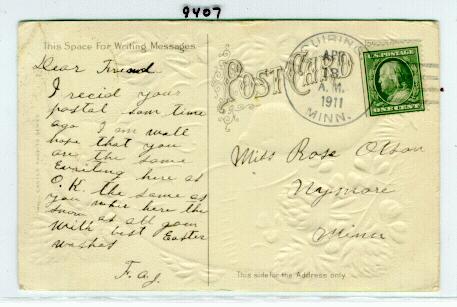 9407
This Space For Writing Messages
Dear Friend
I recid your
postal som time
ago I am well
hope that you
are the same
Evriting here is
O.K. the same as
you
snow is all gon
With best Easter
washes
F. a. J.
POST CARD
APR
18
A.M.
1911
MINN.
U.S. POSTAGE
ONE CENT
Miss Rose Olson
Nymore
Minn
This side for the Address only.